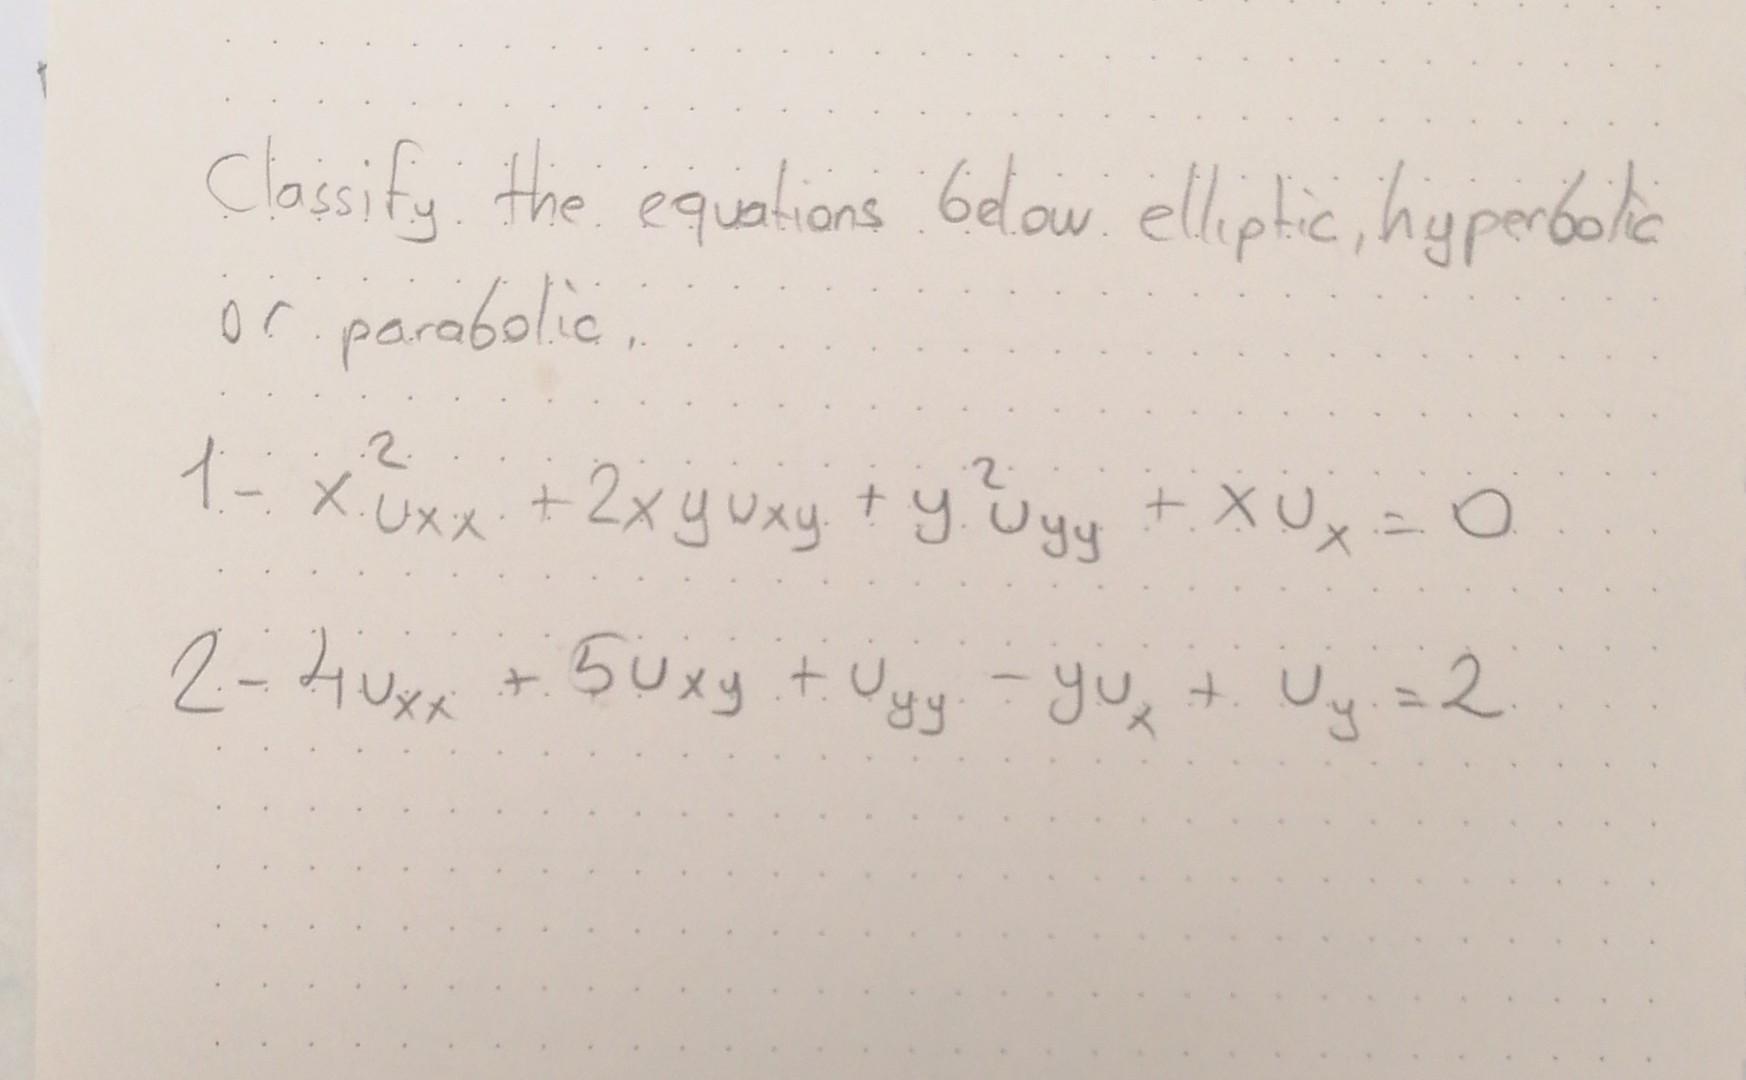 Classify the equations below elliptic, hyperbolic
or parabolic.
1- x²uxx + 2xyuxy + y²uyy + xux = 0
2- 4uxx + 5uxy + uyy - yux + uy = 2